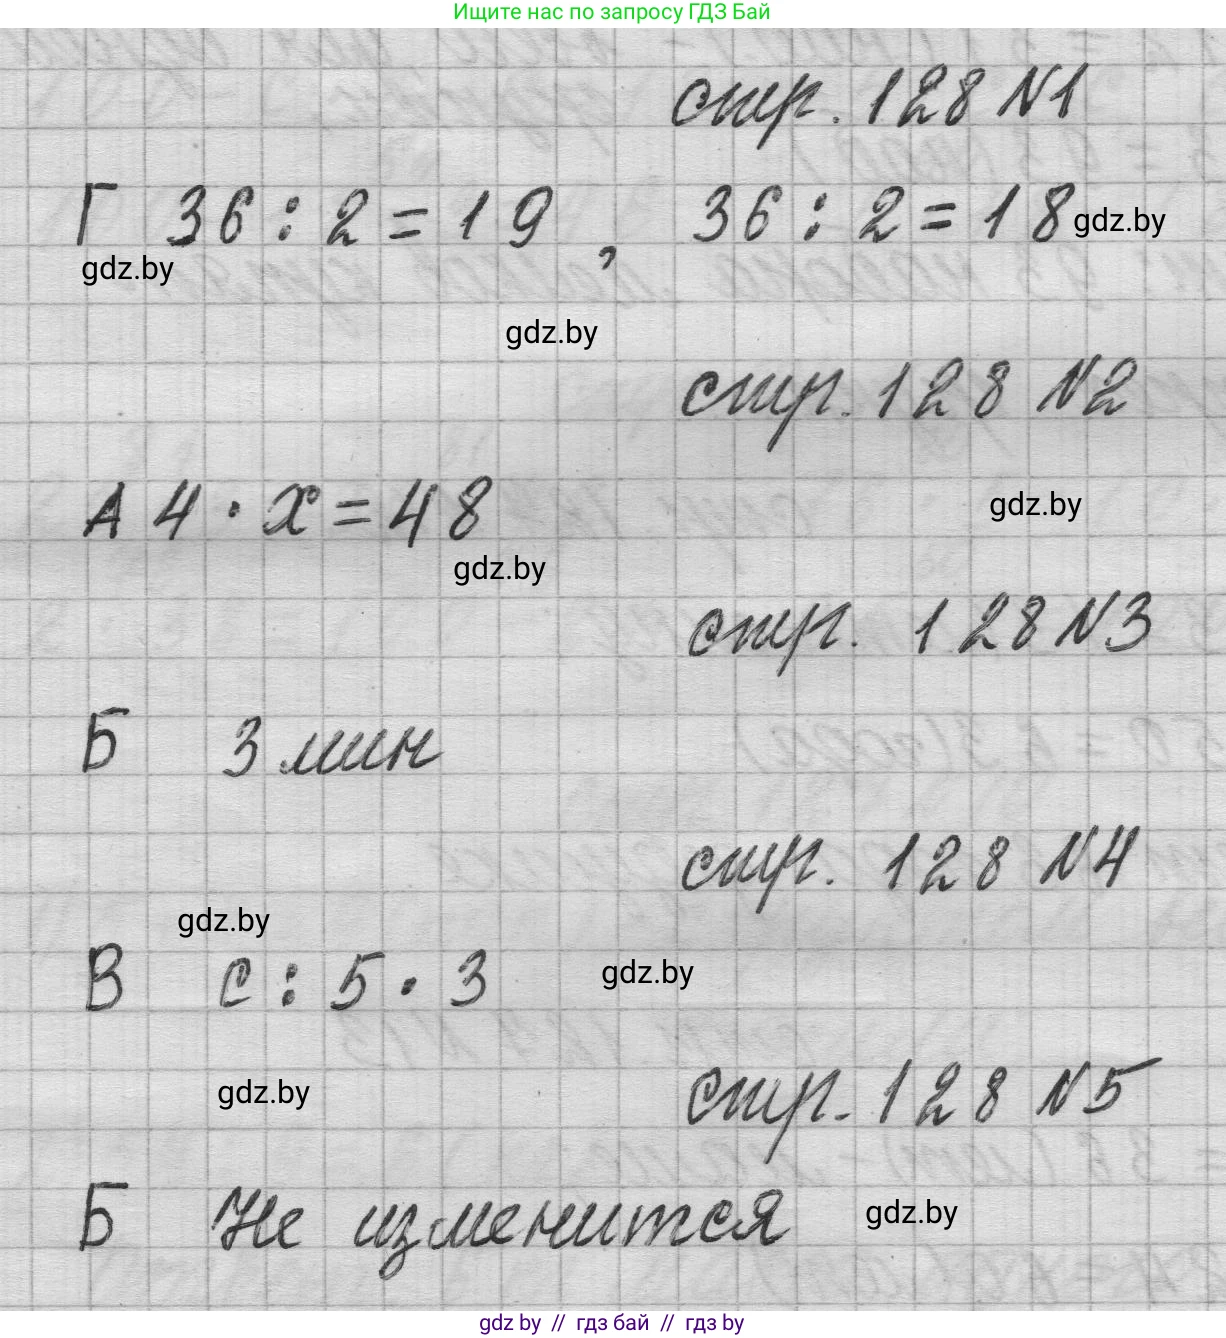 Ищите нас по запросу ГДЗ Бай
стр. 128 №1
Г 36 : 2 = 19 , 36 : 2 = 18 gdz.by
gdz.by
gdz.by
стр. 128 №2
А 4 · х = 48
gdz.by
gdz.by
стр. 128 №3
Б 3 мин
стр. 128 №4
gdz.by
В с : 5 · 3
gdz.by
gdz.by
стр. 128 №5
Б Не изменится
gdz.by
gdz.by // гдз бай // гдз by